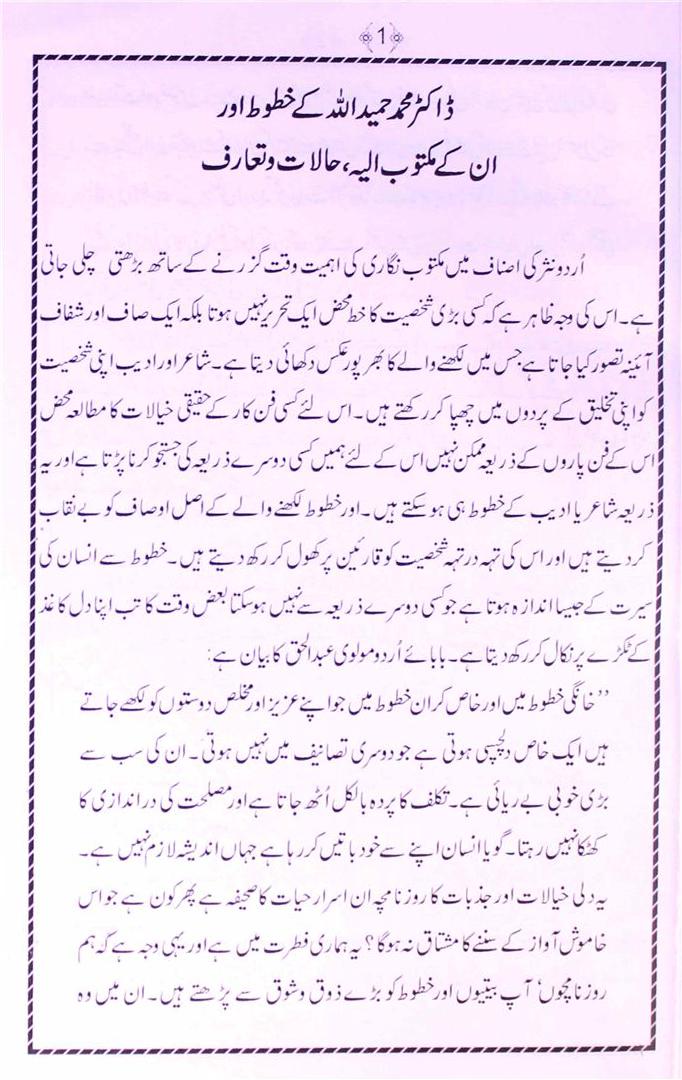 1
ڈاکٹر محمد حمید اللہ کے خطوط اور
ان کے مکتوب الیہ، حالات و تعارف
اُردو نثر کی اصناف میں مکتوب نگاری کی اہمیت وقت گزرنے کے ساتھ بڑھتی چلی جاتی
ہے۔ اس کی وجہ ظاہر ہے کہ کسی بڑی شخصیت کا خط محض ایک تحریر نہیں ہوتا بلکہ ایک صاف اور شفاف
آئینہ تصور کیا جاتا ہے جس میں لکھنے والے کا بھرپور عکس دکھائی دیتا ہے۔ شاعر اور ادیب اپنی شخصیت
کو اپنی تخلیق کے پردوں میں چھپا کر رکھتے ہیں۔ اس لئے کسی فن کار کے حقیقی خیالات کا مطالعہ محض
اس کے فن پاروں کے ذریعہ ممکن نہیں اس کے لئے ہمیں کسی دوسرے ذریعہ کی جستجو کرنا پڑتا ہے اور یہ
ذریعہ شاعر یا ادیب کے خطوط ہی ہو سکتے ہیں۔ اور خطوط لکھنے والے کے اصل اوصاف کو بے نقاب
کر دیتے ہیں اور اس کی تہہ در تہہ شخصیت کو قارئین پر کھول کر رکھ دیتے ہیں۔ خطوط سے انسان کی
سیرت کے جیسا اندازہ ہوتا ہے جو کسی دوسرے ذریعہ سے نہیں ہو سکتا بعض وقت کاتب اپنا دل کاغذ
کے ٹکڑے پر نکال کر رکھ دیتا ہے۔ بابائے اُردو مولوی عبدالحق کا بیان ہے:
”خانگی خطوط میں اور خاص کر ان خطوط میں جو اپنے عزیز اور مخلص دوستوں کو لکھے جاتے
ہیں ایک خاص دلچسپی ہوتی ہے جو دوسری تصانیف میں نہیں ہوتی۔ ان کی سب سے
بڑی خوبی بے ریائی ہے۔ تکلف کا پردہ بالکل اُٹھ جاتا ہے اور مصلحت کی دراندازی کا
کھٹکا نہیں رہتا۔ گویا انسان اپنے سے خود باتیں کر رہا ہے جہاں اندیشہ لازم نہیں ہے۔
یہ دلی خیالات اور جذبات کا روزنامچہ ان اسرار حیات کا صحیفہ ہے پھر کون ہے جو اس
خاموش آواز کے سننے کا مشتاق نہ ہوگا؟ یہ ہماری فطرت میں ہے اور یہی وجہ ہے کہ ہم
روزنامچوں‘ آپ بیتیوں اور خطوط کو بڑے ذوق و شوق سے پڑھتے ہیں۔ ان میں وہ